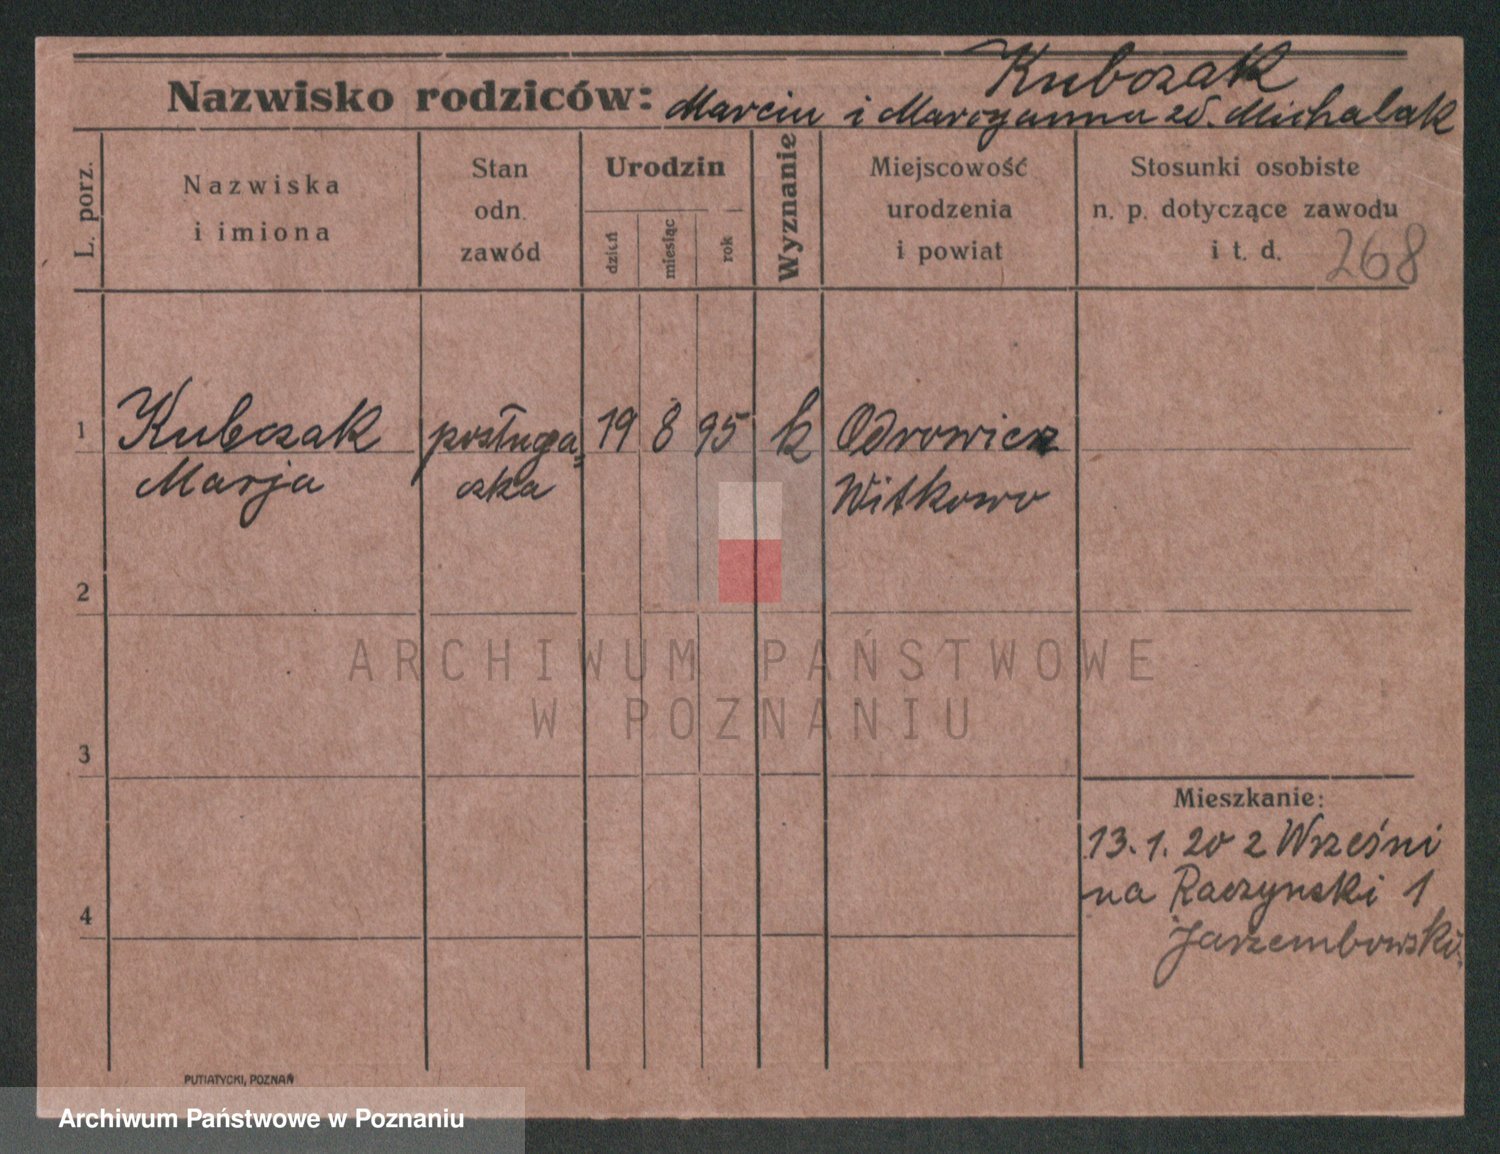 Kubczak
Nazwisko rodziców: Marcin i Marcyanna zd. Michalak
L. porz.
Nazwiska
i imiona
Stan
odn.
zawód
Urodzin
dzień
miesiąc
rok
Wyznanie
Miejscowość
urodzenia
i powiat
Stosunki osobiste
n. p. dotyczące zawodu
i t. d.
268
1 Kubczak posługa= 19 8 95 k Odrowicz
Marja czka Witkowo
2
3
4
Mieszkanie:
13.1.20 z Wrześni
na Raczynski 1
Jarzembowski.
PUTIATYCKI, POZNAŃ
ARCHIWUM PAŃSTWOWE
W POZNANIU
Archiwum Państwowe w Poznaniu